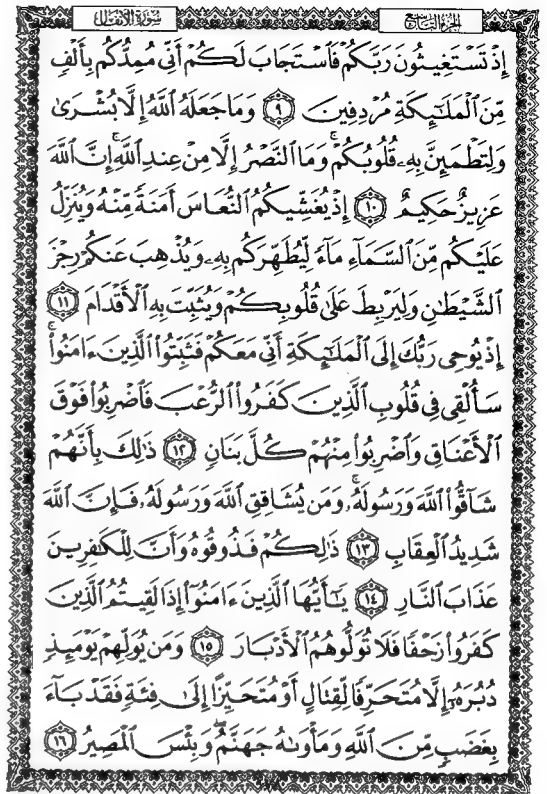 الجزء التاسع
سورة الأنفال
إِذْ تَسْتَغِيثُونَ رَبَّكُمْ فَٱسْتَجَابَ لَكُمْ أَنِّى مُمِدُّكُم بِأَلْفٍ
مِّنَ ٱلْمَلَٰٓئِكَةِ مُرْدِفِينَ ۝٩ وَمَا جَعَلَهُ ٱللَّهُ إِلَّا بُشْرَىٰ
وَلِتَطْمَئِنَّ بِهِۦ قُلُوبُكُمْ ۚ وَمَا ٱلنَّصْرُ إِلَّا مِنْ عِندِ ٱللَّهِ ۚ إِنَّ ٱللَّهَ
عَزِيزٌ حَكِيمٌ ۝١٠ إِذْ يُغَشِّيكُمُ ٱلنُّعَاسَ أَمَنَةً مِّنْهُ وَيُنَزِّلُ
عَلَيْكُم مِّنَ ٱلسَّمَآءِ مَآءً لِّيُطَهِّرَكُم بِهِۦ وَيُذْهِبَ عَنكُمْ رِجْزَ
ٱلشَّيْطَٰنِ وَلِيَرْبِطَ عَلَىٰ قُلُوبِكُمْ وَيُثَبِّتَ بِهِ ٱلْأَقْدَامَ ۝١١
إِذْ يُوحِى رَبُّكَ إِلَى ٱلْمَلَٰٓئِكَةِ أَنِّى مَعَكُمْ فَثَبِّتُوا۟ ٱلَّذِينَ ءَامَنُوا۟ ۚ
سَأُلْقِى فِى قُلُوبِ ٱلَّذِينَ كَفَرُوا۟ ٱلرُّعْبَ فَٱضْرِبُوا۟ فَوْقَ
ٱلْأَعْنَاقِ وَٱضْرِبُوا۟ مِنْهُمْ كُلَّ بَنَانٍ ۝١٢ ذَٰلِكَ بِأَنَّهُمْ
شَآقُّوا۟ ٱللَّهَ وَرَسُولَهُۥ ۚ وَمَن يُشَاقِقِ ٱللَّهَ وَرَسُولَهُۥ فَإِنَّ ٱللَّهَ
شَدِيدُ ٱلْعِقَابِ ۝١٣ ذَٰلِكُمْ فَذُوقُوهُ وَأَنَّ لِلْكَٰفِرِينَ
عَذَابَ ٱلنَّارِ ۝١٤ يَٰٓأَيُّهَا ٱلَّذِينَ ءَامَنُوٓا۟ إِذَا لَقِيتُمُ ٱلَّذِينَ
كَفَرُوا۟ زَحْفًا فَلَا تُوَلُّوهُمُ ٱلْأَدْبَارَ ۝١٥ وَمَن يُوَلِّهِمْ يَوْمَئِذٍ
دُبُرَهُۥٓ إِلَّا مُتَحَرِّفًا لِّقِتَالٍ أَوْ مُتَحَيِّزًا إِلَىٰ فِئَةٍ فَقَدْ بَآءَ
بِغَضَبٍ مِّنَ ٱللَّهِ وَمَأْوَىٰهُ جَهَنَّمُ ۖ وَبِئْسَ ٱلْمَصِيرُ ۝١٦